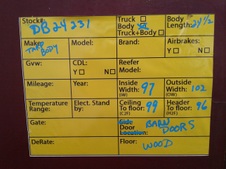 Stock#: DB24231
Truck ☐
Body ☒
Truck+Body ☐
Body Length: 24½
Make: The Body
Model:
Brand:
Airbrakes?
Y ☐ N ☐
Gvw:
CDL:
Y ☐ N ☐
Reefer Model:
Mileage:
Year:
Inside Width: (IW) 97
Outside Width: (OW) 102
Temperature Range:
Elect. Stand by:
Ceiling To floor: 99
Header To floor: 96
Gate:
Side Door Location: BARN DOORS
DeRate:
Floor: WOOD